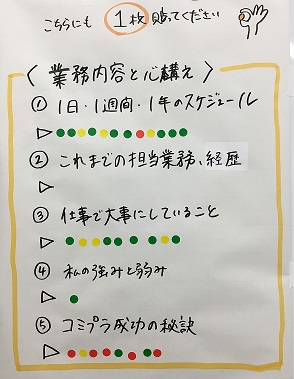 こちらにも 1枚 貼ってください
〈業務内容と心構え〉
① 1日・1週間・1年のスケジュール
② これまでの担当業務、経歴
③ 仕事で大事にしていること
④ 私の強みと弱み
⑤ コミプラ成功の秘訣